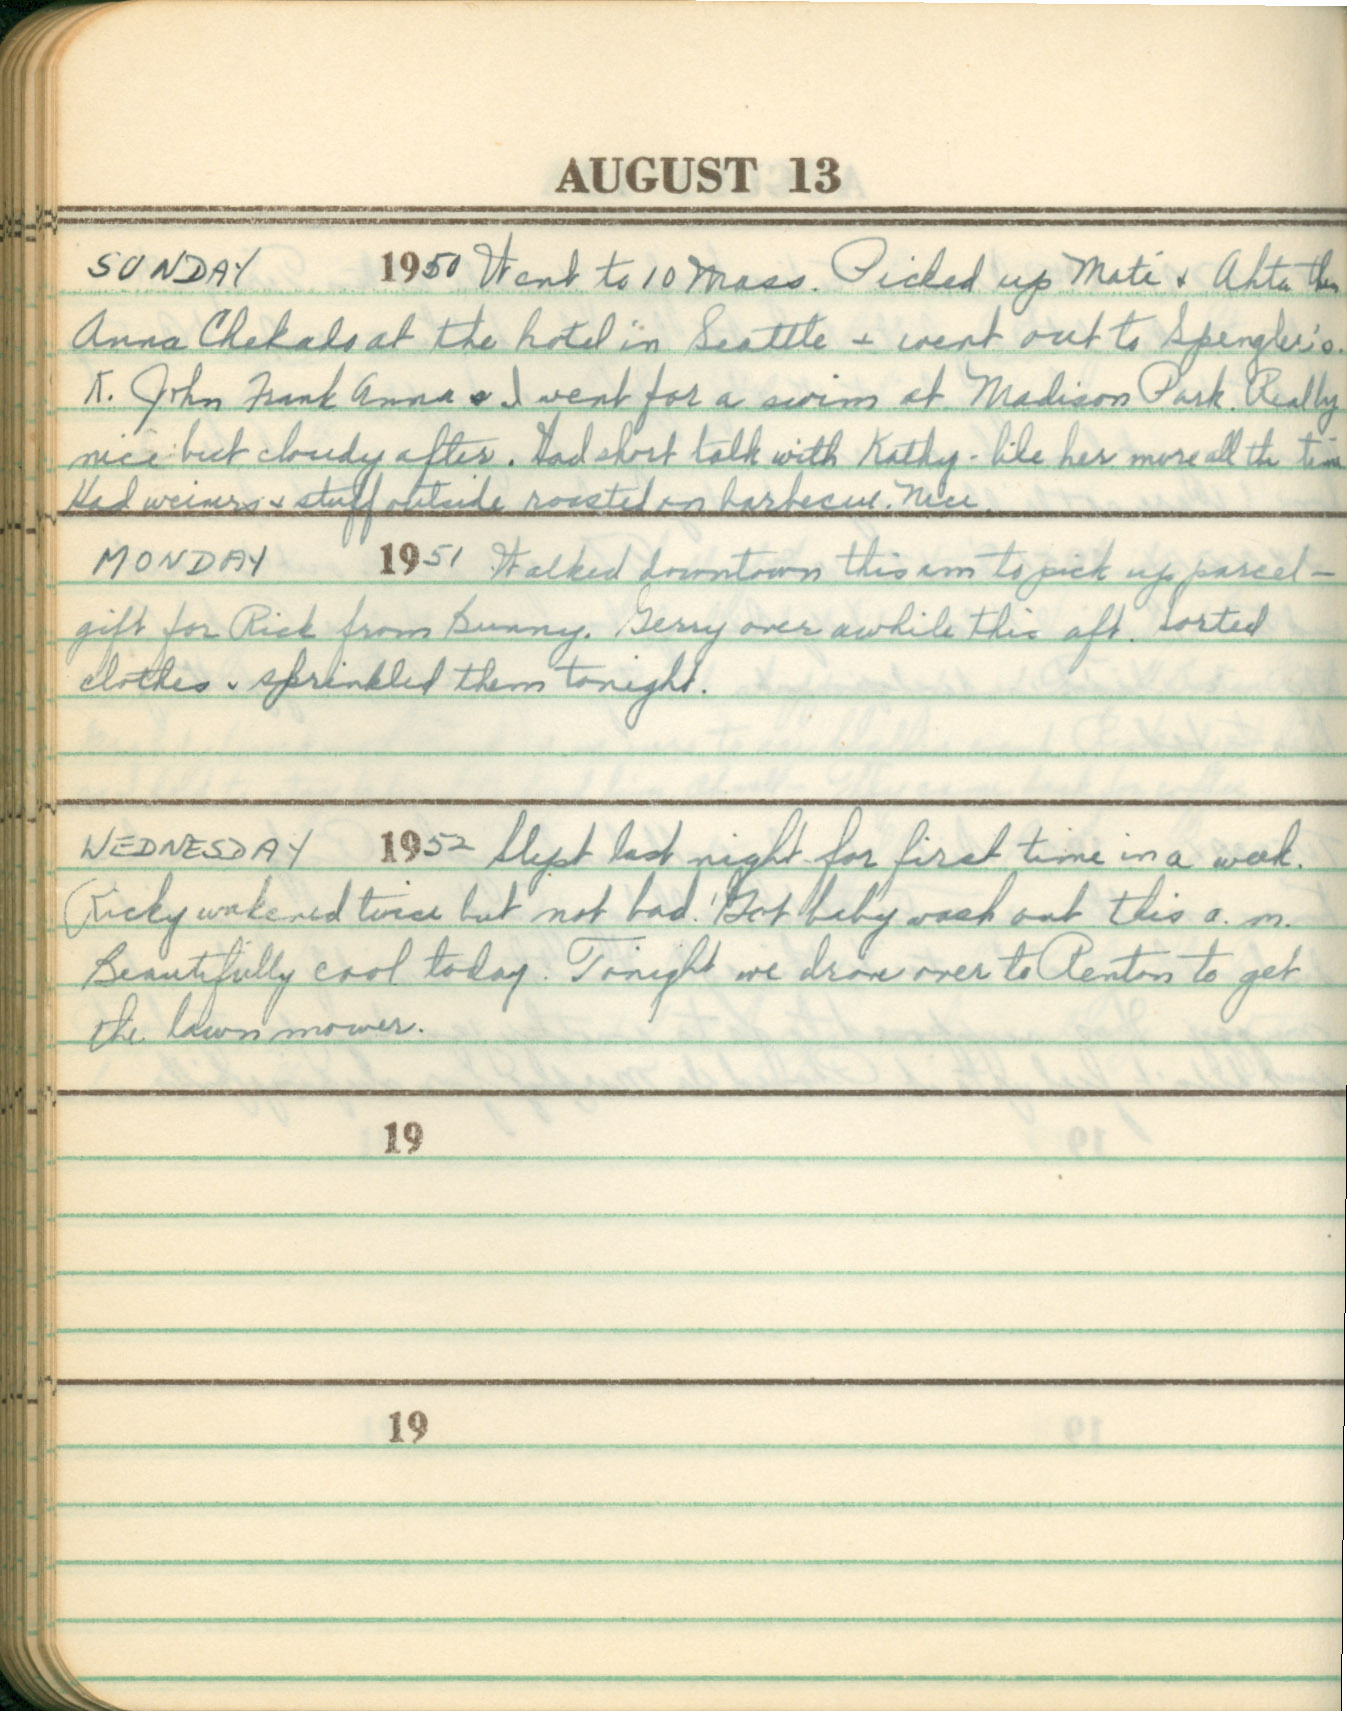 AUGUST 13
SUNDAY 1950 Went to 10 Mass. Picked up Mati + Ahta then
Anna Chekals at the hotel in Seattle + went out to Spengler's.
K. John Frank Anna & I went for a swim at Madison Park. Really
nice but cloudy after. Had short talk with Kathy - like her more all the time
Had weiners + stuff outside roasted on barbecue. Nice.
MONDAY 1951 Walked downtown this am to pick up parcel -
gift for Rick from Bunny. Gerry over awhile this aft. Sorted
clothes + sprinkled them tonight.
WEDNESDAY 1952 Slept last night for first time in a week.
(Ricky wakened twice but not bad.) Got baby wash out this a.m.
Beautifully cool today. Tonight we drove over to Renton to get
the lawn mower.
19
19